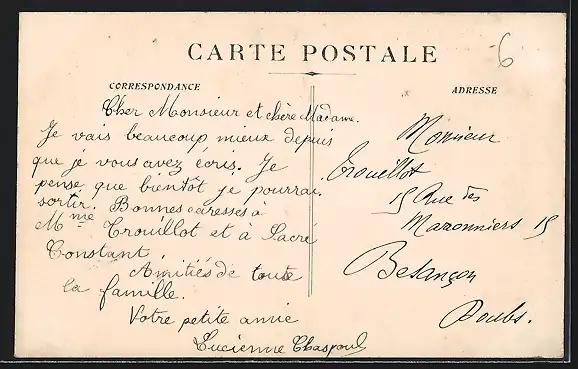 6
CARTE POSTALE
CORRESPONDANCE
ADRESSE
Cher Monsieur et chère Madame.
Je vais beaucoup mieux depuis
que je vous avez écris. Je
pense que bientôt je pourrai
sortir. Bonnes caresses à
Mme Trouillot et à Sacré
Constant.
Amitiés de toute
la famille.
Votre petite amie
Lucienne Chaspoul
Monsieur
Trouillot
15 Rue des
Maronniers 15
Besançon
Doubs.